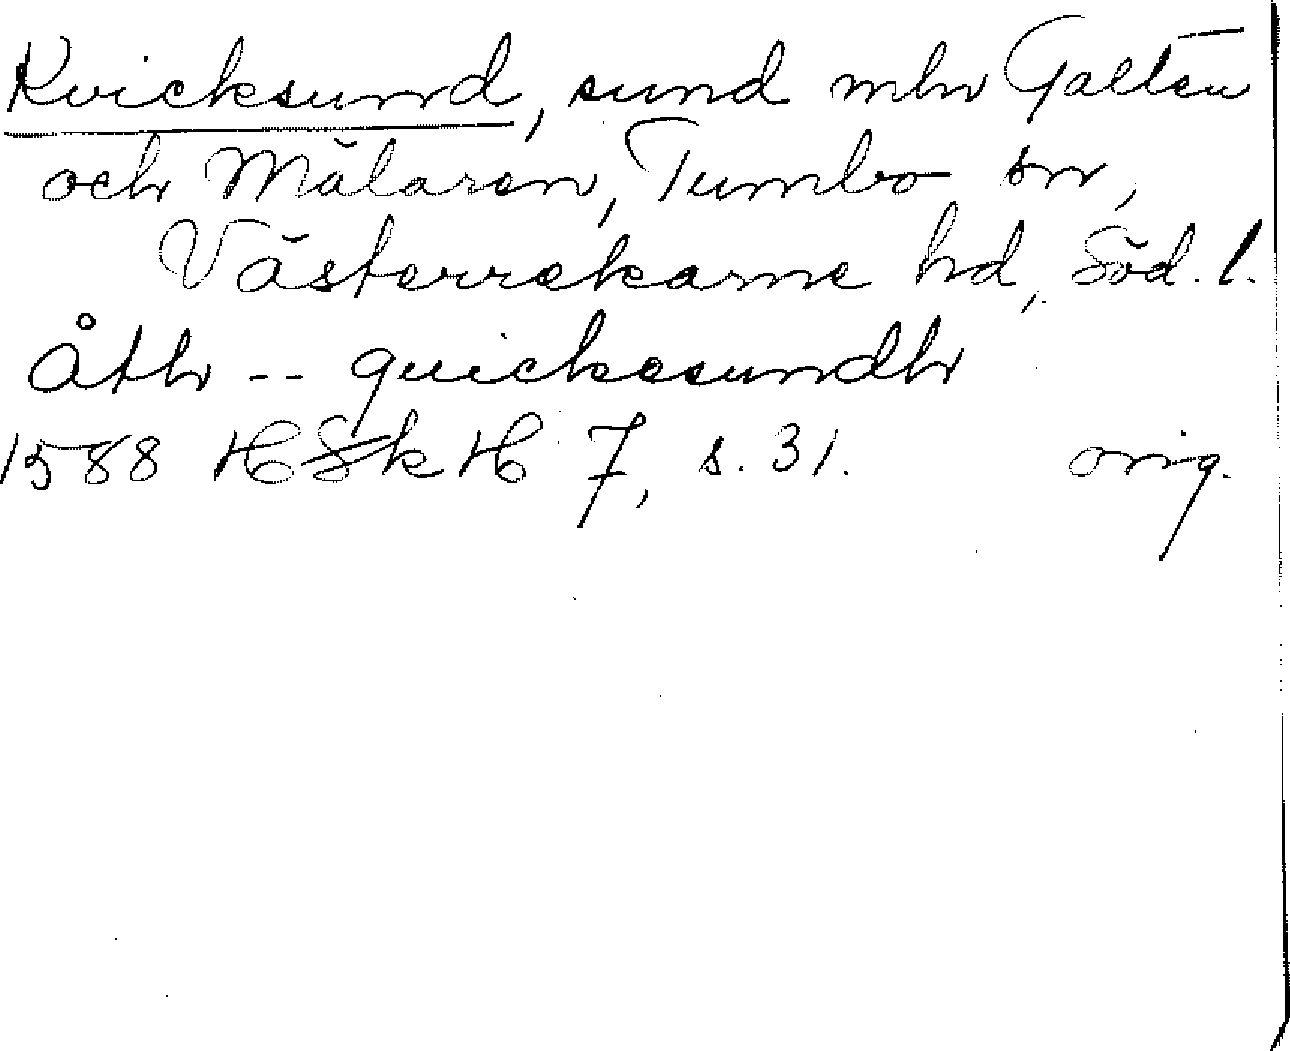 Kvicksund, sund mlw Galten
och Mälaren, Tumbo sn,
Västerrekarne hd, Söd. l.
åth -- quickesundh
1588 HSkH 7, s. 31. orig.